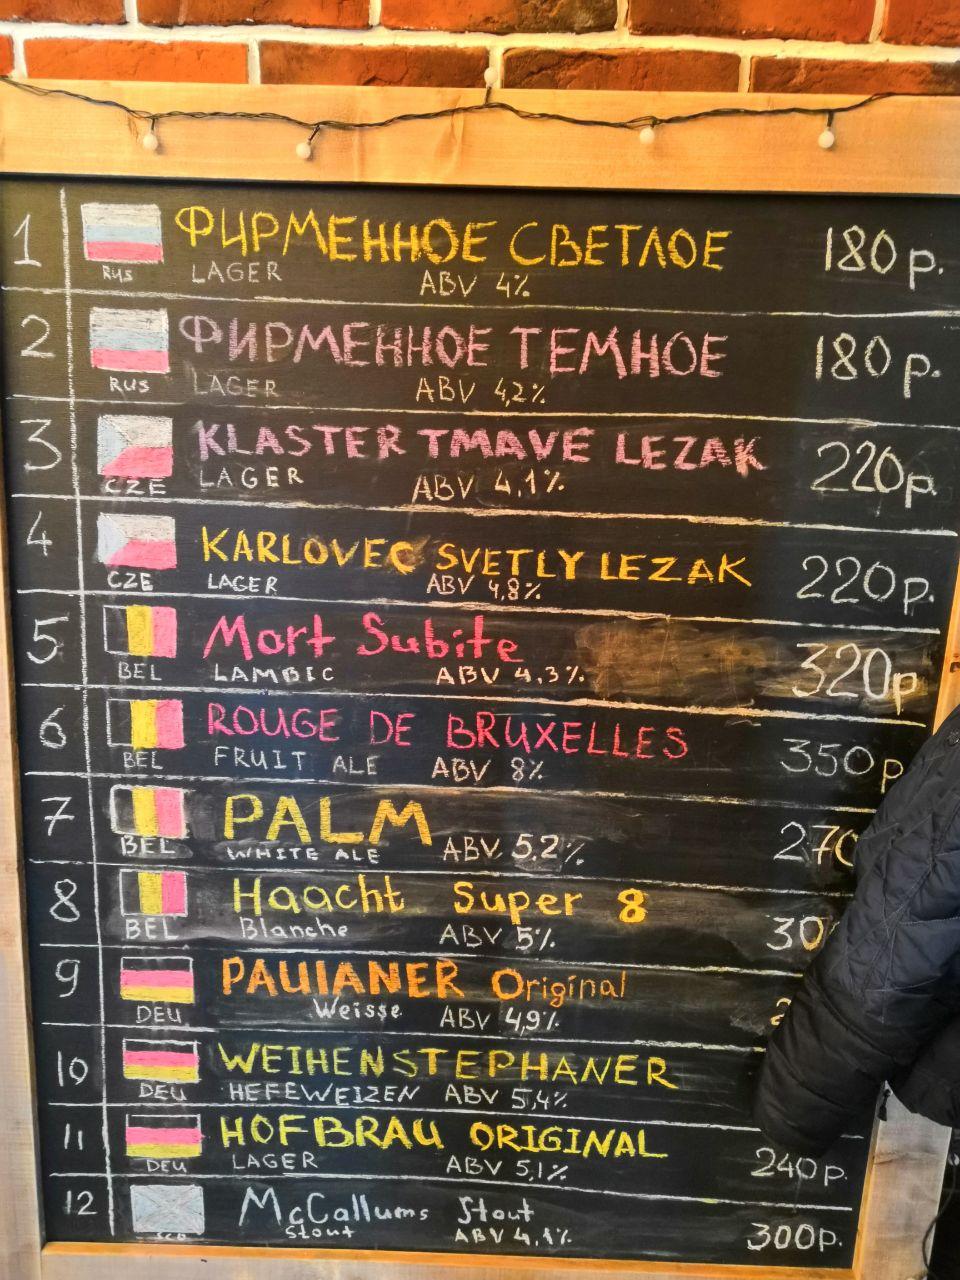 1 ФИРМЕННОЕ СВЕТЛОЕ 180 р.
RUS LAGER ABV 4%
2 ФИРМЕННОЕ ТЕМНОЕ 180 р.
RUS LAGER ABV 4,2%
3 KLASTER TMAVE LEZAK 220р.
CZE LAGER ABV 4,1%
4 KARLOVEC SVETLY LEZAK 220р.
CZE LAGER ABV 4,8%
5 Mort Subite 320р
BEL LAMBIC ABV 4,3%
6 ROUGE DE BRUXELLES 350р
BEL FRUIT ALE ABV 8%
7 PALM 270
BEL WHITE ALE ABV 5,2%
8 Haacht Super 8 30
BEL Blanche ABV 5%
9 PAULANER Original
DEU Weisse ABV 4,9%
10 WEIHENSTEPHANER
DEU HEFEWEIZEN ABV 5,4%
11 HOFBRAU ORIGINAL 240р.
DEU LAGER ABV 5,1%
12 McCallums Stout 300р.
Stout ABV 4,1%